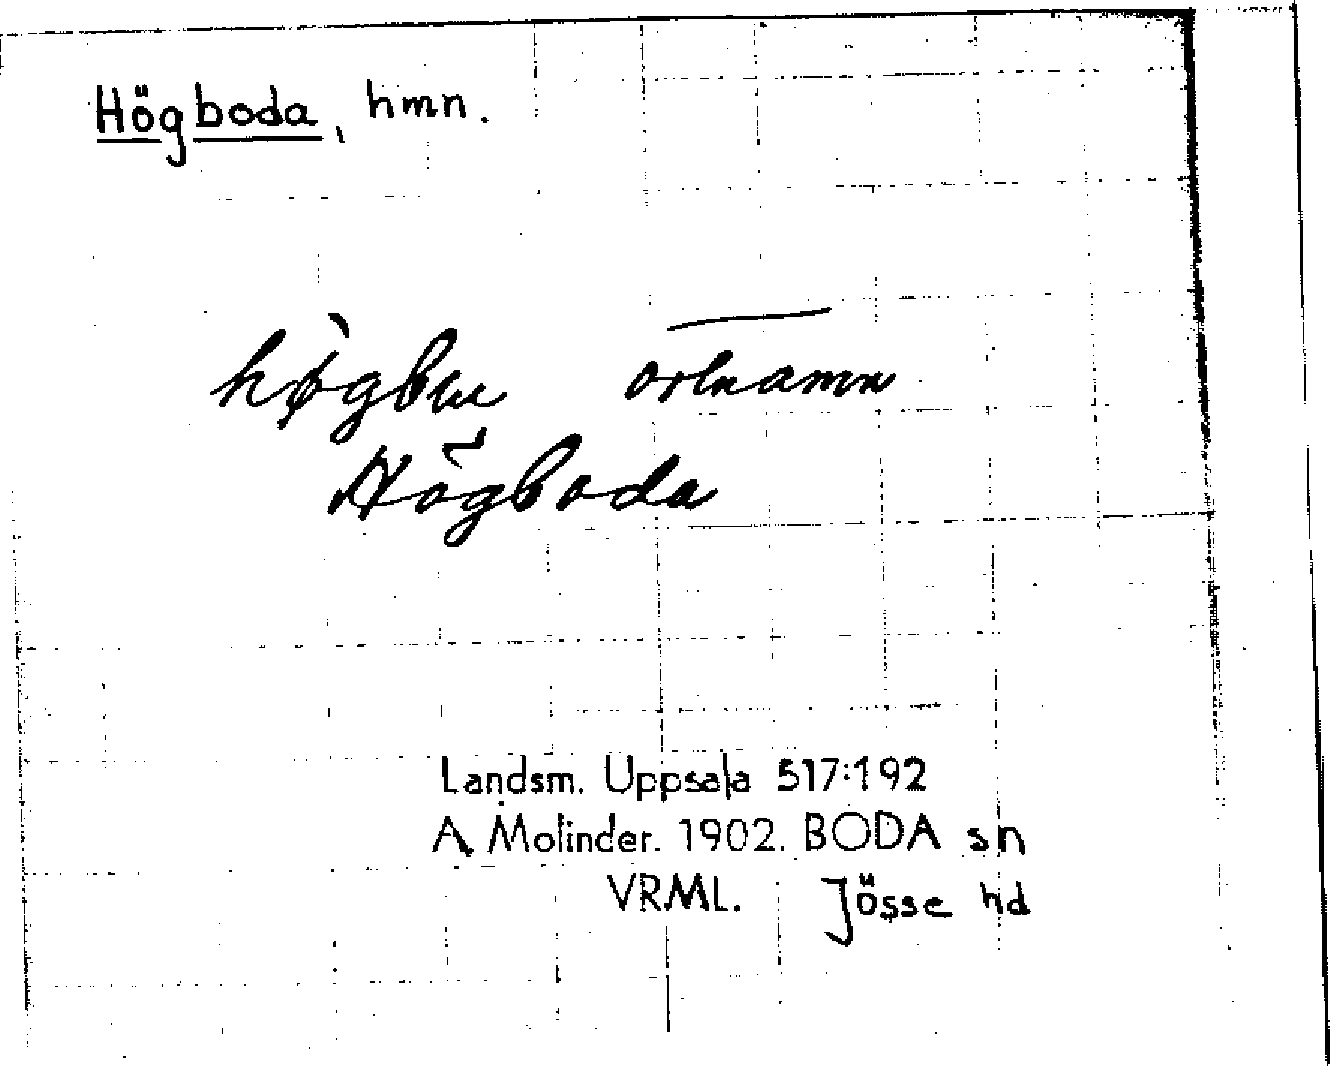 Högboda, hmn.
ortnamn
Högboda
Landsm. Uppsala 517:192
A. Molinder. 1902. BODA sn
VRML. Jösse hd